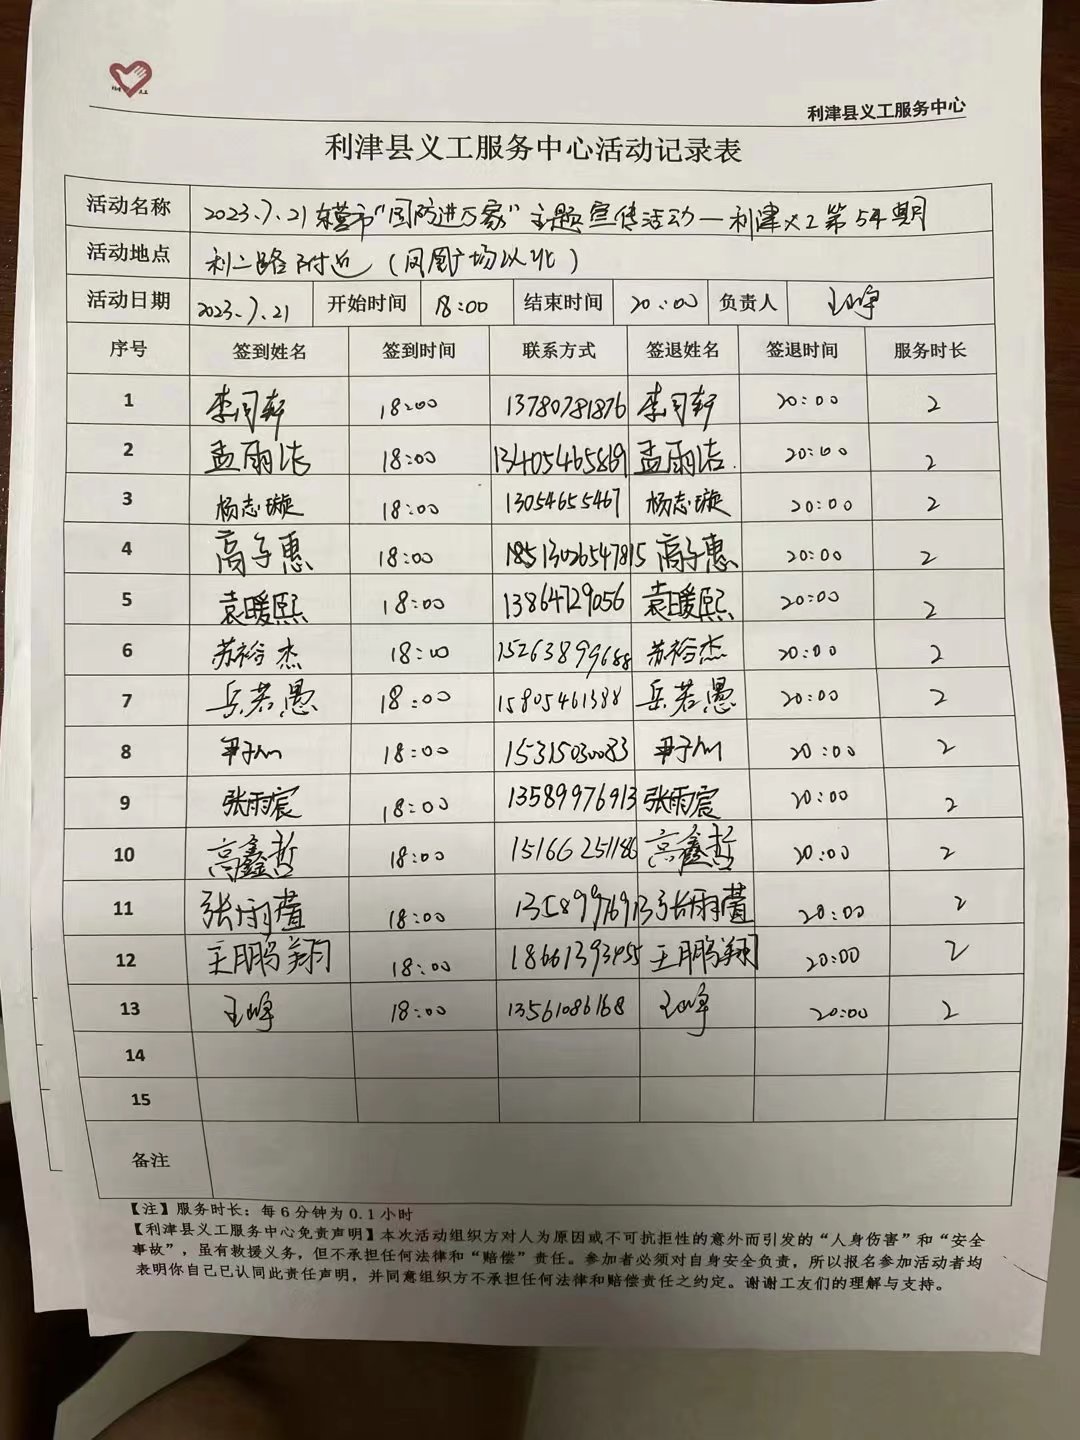 利津县义工服务中心
利津县义工服务中心活动记录表
活动名称 2023.7.21东营市“国防进万家”主题宣传活动—利津义工第54期
活动地点 利二路附近（凤凰广场以北）
活动日期 2023.7.21 开始时间 18:00 结束时间 20:00 负责人 王峰
序号 签到姓名 签到时间 联系方式 签退姓名 签退时间 服务时长
1 李同轩 18:00 13780781876 李同轩 20:00 2
2 孟雨洁 18:00 13405465869 孟雨洁 20:00 2
3 杨志璇 18:00 13054655467 杨志璇 20:00 2
4 高子惠 18:00 高子惠 20:00 2
5 袁暖熙 18:00 13864729056 袁暖熙 20:00 2
6 苏裕杰 18:00 15263899688 苏裕杰 20:00 2
7 岳若愚 18:00 15805461388 岳若愚 20:00 2
8 18:00 15315030083 20:00 2
9 张雨宸 18:00 13589976913 张雨宸 20:00 2
10 高鑫哲 18:00 15166251186 高鑫哲 20:00 2
11 张雨萱 18:00 13589976913 张雨萱 20:00 2
12 王鹏翔 18:00 18661393455 王鹏翔 20:00 2
13 王峰 18:00 13561086168 王峰 20:00 2
14
15
备注
【注】服务时长：每6分钟为0.1小时
【利津县义工服务中心免责声明】本次活动组织方对人为原因或不可抗拒性的意外而引发的“人身伤害”和“安全
事故”，虽有救援义务，但不承担任何法律和“赔偿”责任。参加者必须对自身安全负责，所以报名参加活动者均
表明你自己已认同此责任声明，并同意组织方不承担任何法律和赔偿责任之约定。谢谢工友们的理解与支持。